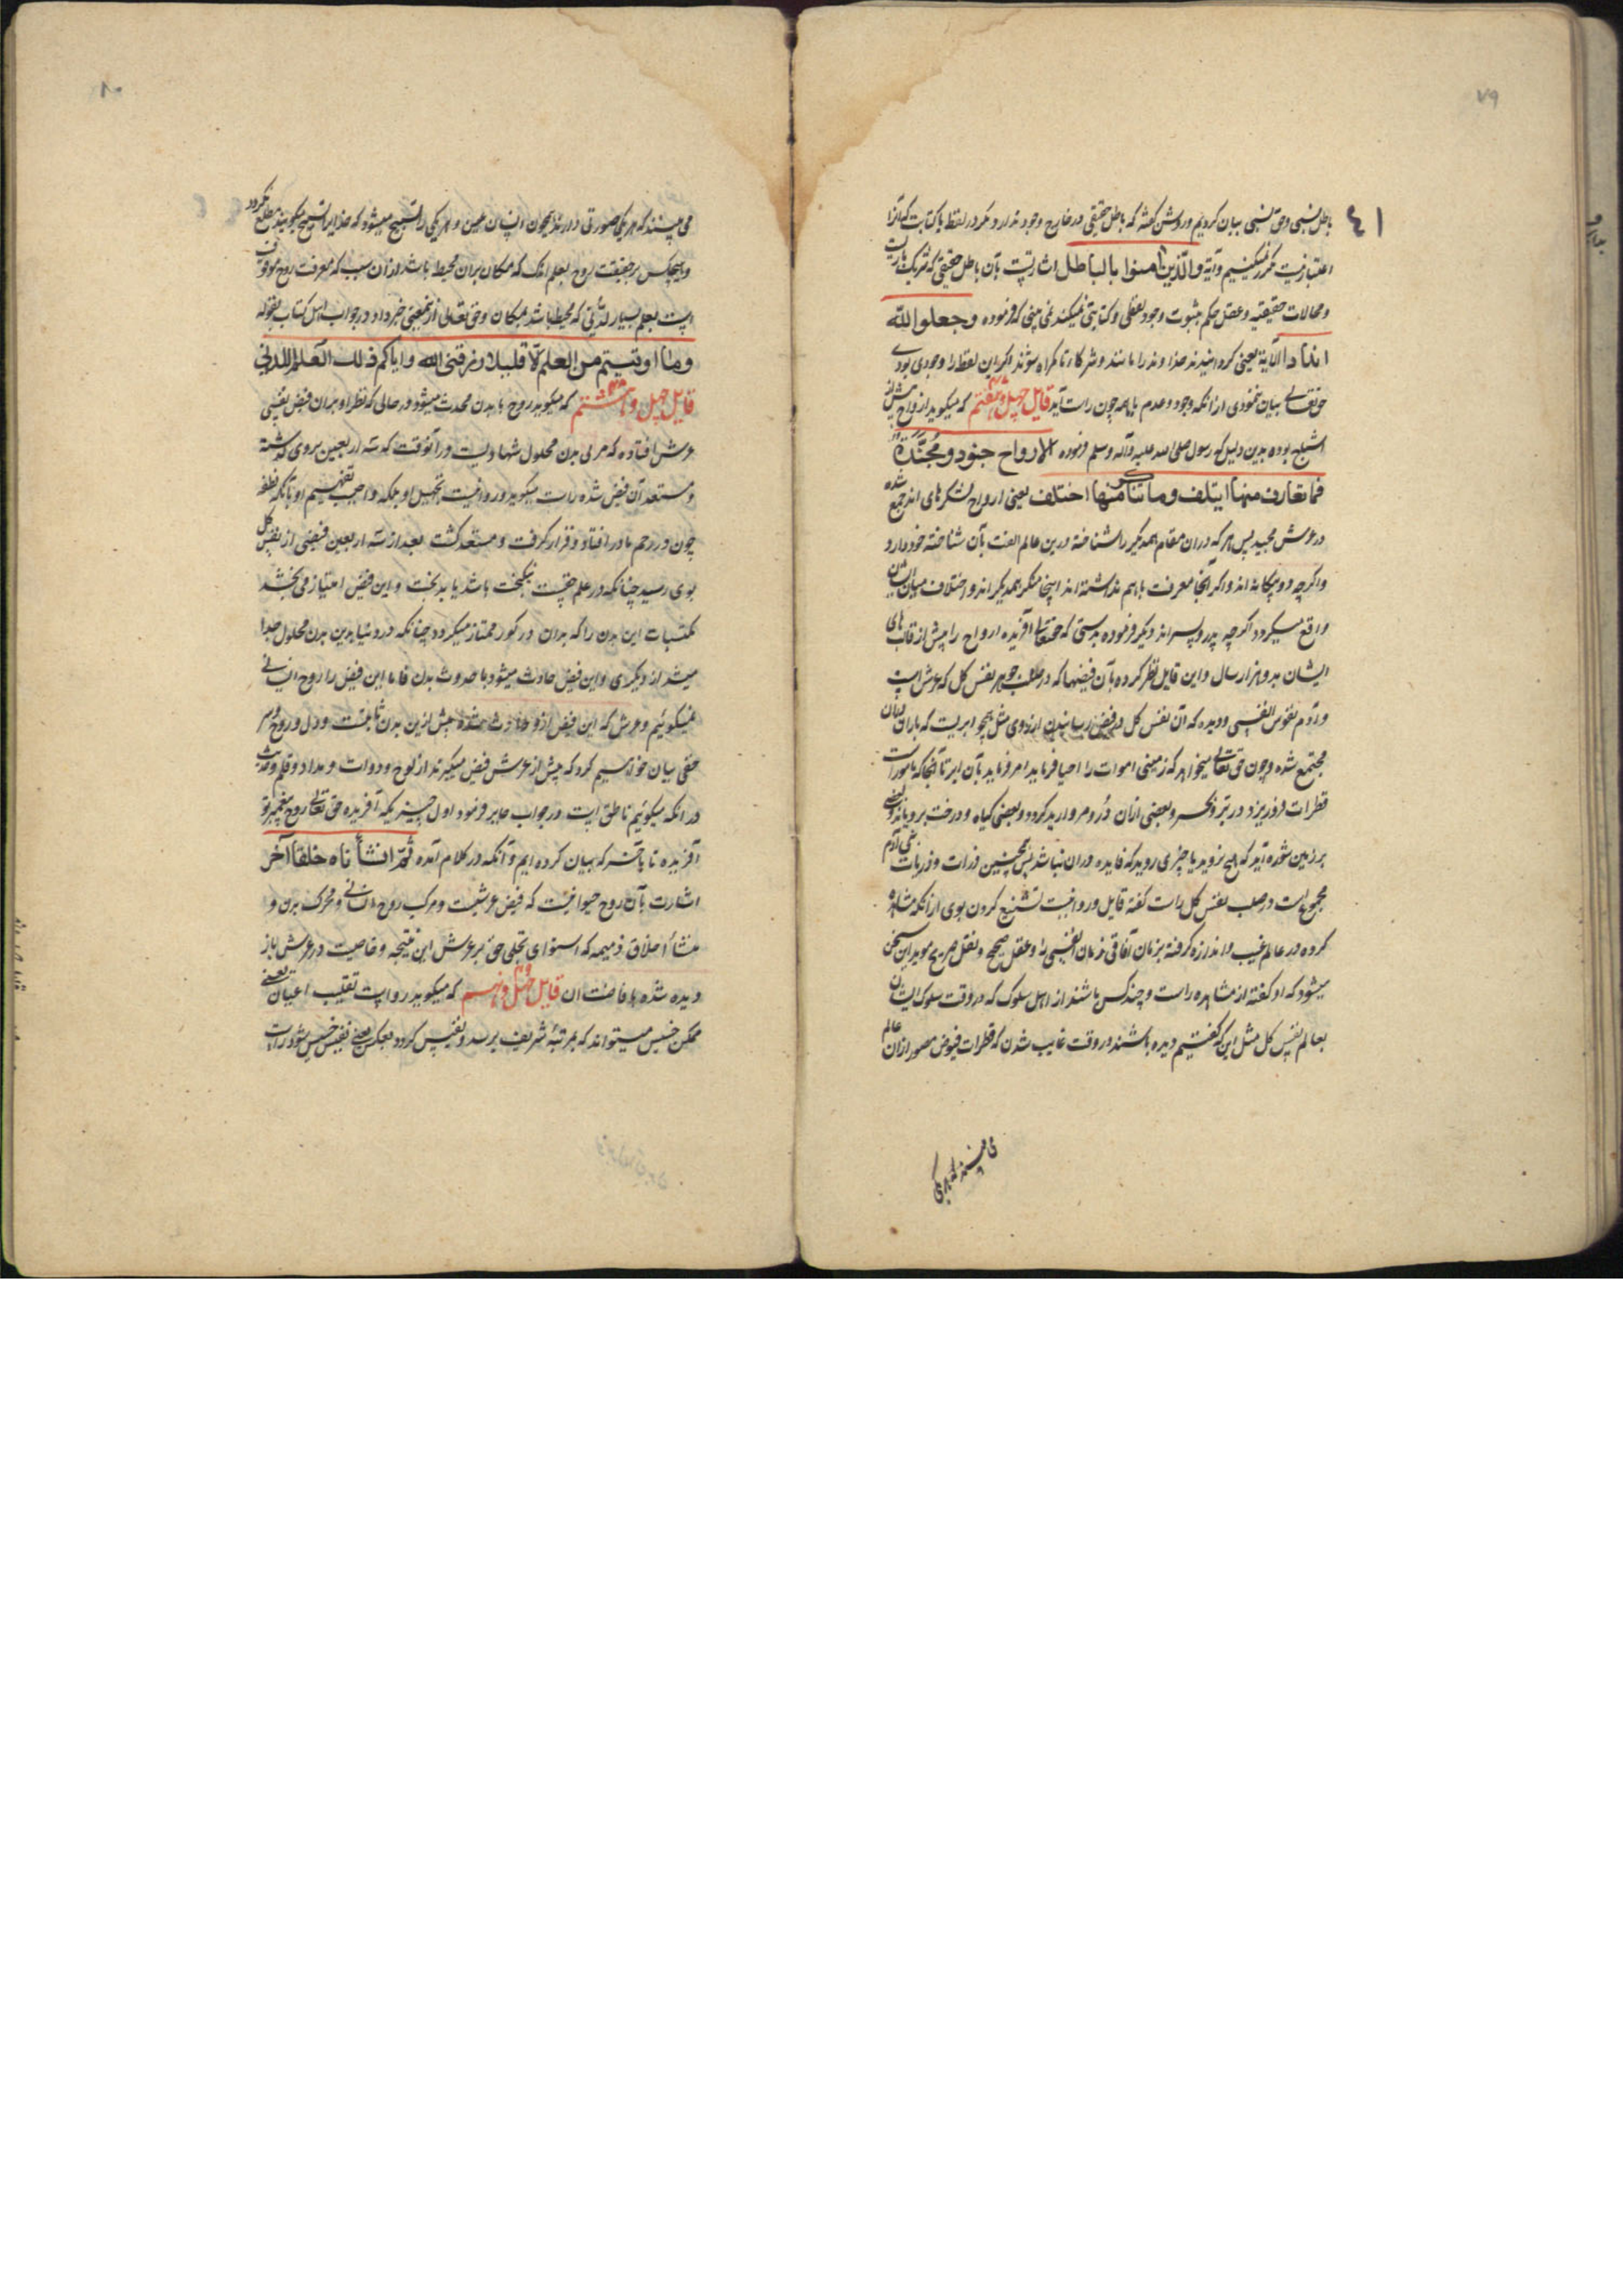 ٧٩
٤١
باطل نسبی و حق نسبی بیان کردیم و روشن گفته که باطل حقیقی در خارج وجود ندارد مگر در لفظ یا کتابت که آنرا
اعتباری نیست مکرر نمیکنیم و آیة والّذین آمنوا بالباطل اشارتست بآن باطل حقیقی که شریک باریست
و محالات حقیقیه و عقل حکم بثبوت وجود لفظی و کتابتی نمیکند نمی بینی که فرموده وجعلوا لله
اندادا الآیة یعنی گردانیدند خدا وند را مانند و شرکا تا گمراه شوند اگر این لفظ را وجودی بودی
حقتعالی بیان ننمودی از آنکه وجود و عدم باهم چون راست آید قایل چهل و هفتم که میگوید ارواح پیش از
اشباح بوده بدین دلیل که رسول صلی الله علیه وآله وسلم فرموده الارواح جنود مجنّدة
فما تعارف منها ایتلف وما تناکر منها اختلف یعنی ارواح لشکرهای اند جمع شده
در عرش مجید پس هر که در ان مقام همدیگر را شناخته درین عالم الفت بآن شناخته خود دارد
و اگرچه دو بیگانه اند و اگر آنجا معرفت باهم نداشته اند اینجا منکر همدیگر اند و اختلاف میان ایشان
واقع میگردد اگرچه پدر و پسر اند دیگر فرموده بدرستی که حقتعالی آفریده ارواح را پیش از قالب های
ایشان بدو هزار سال و این قایل نظر کرده بآن فیضها که در صلب جوهر نفس کل که عرش است
و آدم نفوس انفسی و دیده که آن نفس کل در فیض رسانیدن از روی مثل همچو ابریست که باران در ان
مجتمع شده و چون حق تعالی میخواهد که زمینی اموات را احیا فرماید امر فرماید بآن ابر تا آنجا که مامور است
قطرات فرو ریزد در بر و بحر و بعضی ازان درّ و مروارید گردد و بعضی گیاه و درخت برویاند و بعضی
بر زمین شوره آید که هیچ نروید یا چیزی روید که فایده در ان نباشد پس همچنین ذرات و ذریات بنی آدم
مجموع است در صلب نفس کل راست گفته قایل و روا نیست تشنیع کردن بوی از آنکه مشاهده
کرده در عالم غیب و اندازه گرفته بزمان آفاقی زمان انفسی را و عقل صحیح و نقل صریح موید این سخن
میشود که او گفته از مشاهده راست و چند کس باشند از اهل سلوک که در وقت سلوک ایشان
بعالم نفس کل مثل این که گفتیم دیده باشند در وقت غایب شدن که قطرات فیوض مصور ازان عالم
می بینند که هر یکی صورتی دارند همچون انسان معین و هر یکی را تسبیح میشود که خدا را تسبیح میگویند مطلع نگردد
و هیچکس بر حقیقت روح بعلم اندک که مکان بران محیط باشد از ان سبب که معرفت روح موقوف
است بعلم بسیار لدنّی که محیط باشد بمکان و حق تعالی از نمعنی خبر داد در جواب اهل کتاب بقوله
وما اوتیتم من العلم الّا قلیلا رزقنی الله وایاکم ذلك العلم اللدنی
قایل چهل و هشتم که میگوید روح با بدن محدث میشود در حالی که نظر او بر ان فیض نفسی
عرش افتاده که مربی بدن محلول شهادیست در آنوقت که سه اربعین بر وی گذشته
و مستعد آن فیض شده راست میگوید و روا نیست تجهیل او بلکه واجب تفهیم او تا آنکه نطفه
چون در رحم مادر افتاد و قرار گرفت و مستعد گشت بعد از سه اربعین فیضی از نفس کل
بوی رسید چنانکه در علم حقست نیکبخت باشد یا بدبخت و این فیض امتیاز می بخشد
مکتسبات این بدن را که بدان در گور ممتاز میگردد چنانکه در دنیا بدین بدن محلول جدا
میشد از دیگری و این فیض حادث میشود با حدوث بدن فاما این فیض را روح انسانی
نمیگوئیم و عرش که این فیض ازو حادث شده پیش ازین بدن ثابتست و دل و روح و سر
خفی بیان خواهیم کرد که پیش از عرش فیض میگیرند از لوح و دوات و مداد و قلم و نیست
در آنکه میگوئیم ناطق است در جواب جابر فرمود اول چیزیکه آفریده حق تعالی روح پیغمبر تو
آفریده تا بآخر که بیان کرده ایم و آنکه در کلام آمده ثمّ انشأناه خلقا آخر
اشارت بآن روح حیوانیست که فیض عرشیست و مرکب روح انسانی و محرک بدن و
منشأ اخلاق ذمیمه که استوای تجلی حق بر عرش این نتیجه و خاصیت در عرش باز
دیده شده بافاضت ان قایل چهل و نهم که میگوید رواست تقلیب اعیان یعنی
ممکن خسیس میتواند که بمرتبهٔ شریف برسد و نفیس گردد و بعکس یعنی نفیس خسیس شود راست